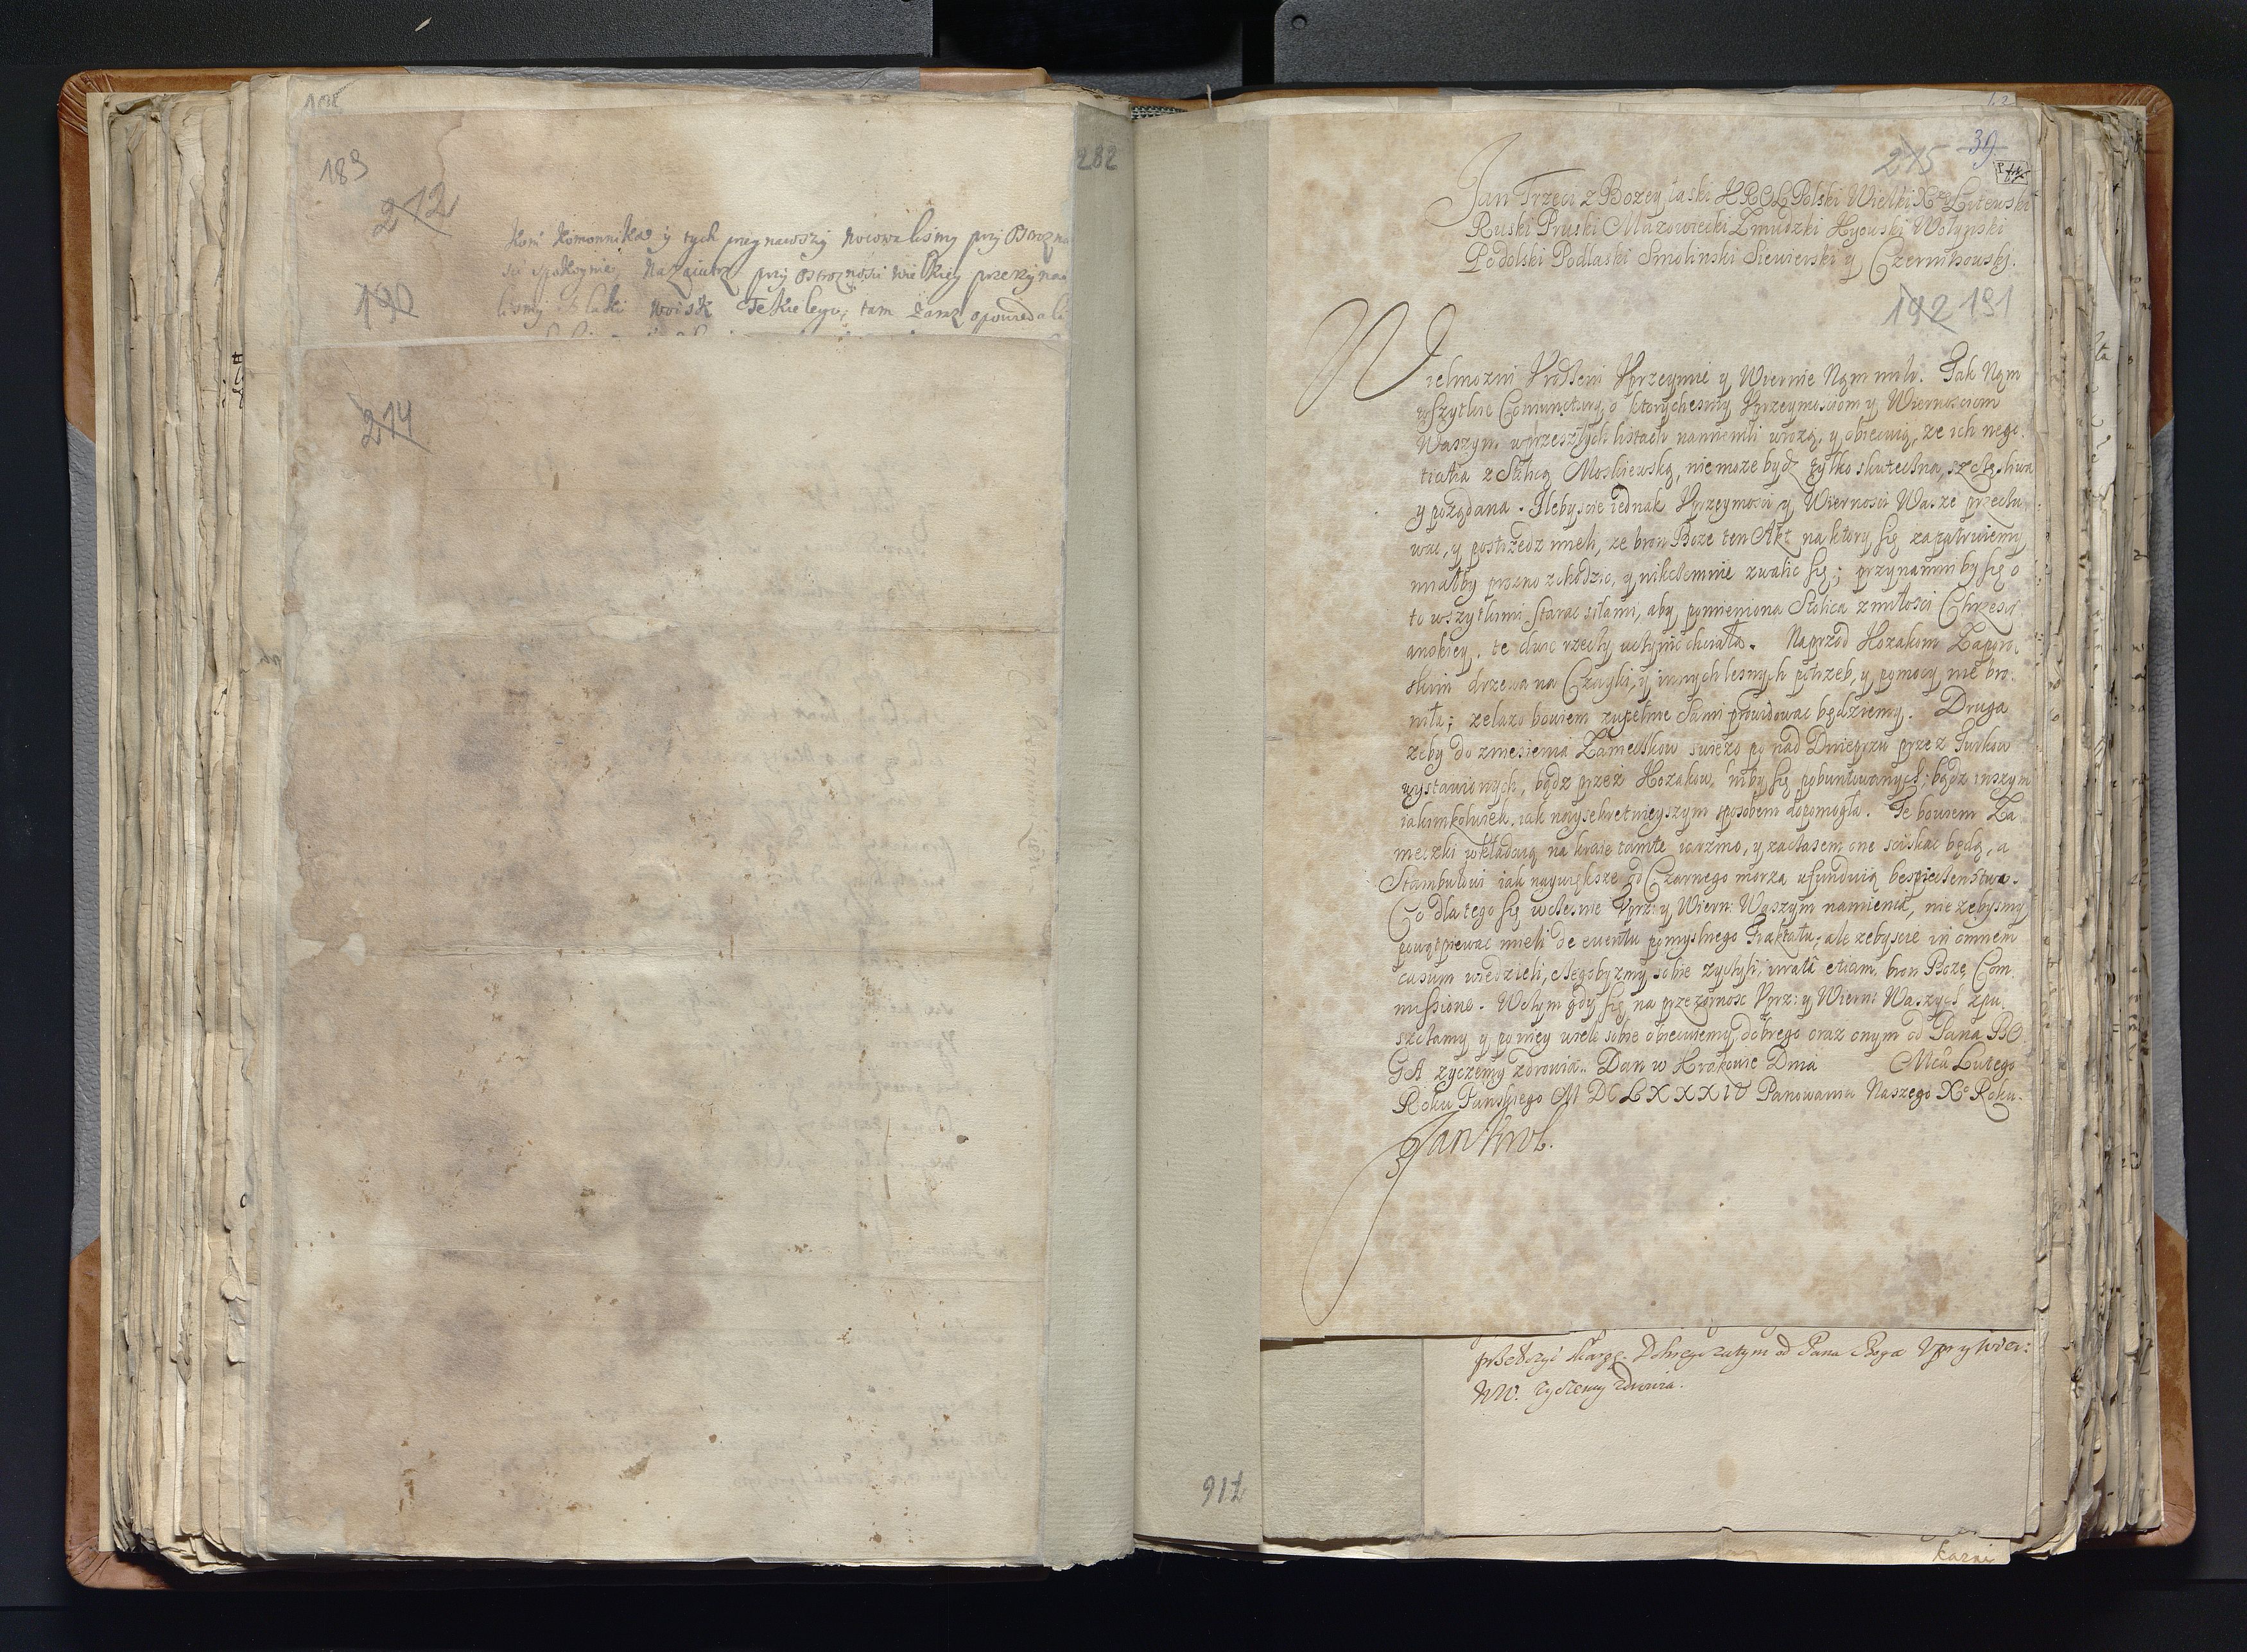 183
212
koni komonnika y tych przegnawszy nocowalismy przy
spokoynie, Nazaiutrz przy ostroznosci wielkiey
190
woisk Tekielego, tam zaraz opowiedali
214
282
215 39
Jan Trzeci z Bozey łaski KROL Polski Wielki Xże Litewski
Ruski Pruski Mazowiecki Zmudzki Kyowski Wołynski
Podolski Podlaski Smolinski Siewierski y Czernihowski.
192 191
Wielmozni Vrodzeni Vprzeymie y Wiernie Nam mili. Jak Nam
wszytkie Comunctury o ktorychesmy Vprzeymosciom y Wiernosciom
Waszym w przeszłych listach namienili wrozą, y obiecuią, ze ich nego
tiatia z Stolicą Moskiewską, niemoze bydz tylko skuteczna, szczęsliwa
y poządana. Jlebyscie iednak Vprzeymosci y Wiernosci Wasze przeczu
wac, y postrzedz mieli, ze bron Boze ten Akt na ktory się zapatruiemy
miałby prozno zchodzic, y nikczemnie zwalic się; przynamni by się o
to wszytkimi starac siłami, aby pomieniona Stolica z miłosci Chrzesci
anskiey, te dwie rzeczy uczynic chciała. Naprzod Kozakom Zaporo
skim drzewa na Czayki, y innych lesnych potrzeb, y pomocy nie bro
niła; zelazo bowiem zupełnie sami prowidowac będziemy. Druga
zeby do zniesienia Zameczkow swiezo po nad Dnieprzu przez Turkow
wystawionych, bądz przez Kozakow, niby się pobuntowanych; bądz inszymi
iakimkolwiek, iak naysekretnieyszym sposobem dopomogła. Te bowiem Za
meczki wkładaią na kraie tamte iarzmo, y zaczasem one sciskac będą, a
Stambułowi iak naywiększe od Czarnego morza ufunduią bespieczenstwo.
Co dla tego się wczesnie Vprz: y Wiern: Waszym namienia, nie zebysmy
powątpiewac mieli de eventu pomyslnego Traktatu, ale zebyscie in omnem
casum wiedzieli, czegobyzmy sobie zyczyli, irrata etiam, bron Boze, Com
missione. W czym gdy się na przezornosc Vprz: y Wiern: Waszych spu
szczamy y po niey wiele sobie obiecuiemy, dobrego oraz onym od Pana BO
GA zyczemy zdrowia. Dan w Krakowie Dnia Mca Lutego
Roku Panskiego MDCLXXXIV Panowania Naszego Xo Roku.
Jan Krol.
Dobrego zatym od Pana Boga Vprz y Wier:
WW. zyczemy zdrowia.
917
karni